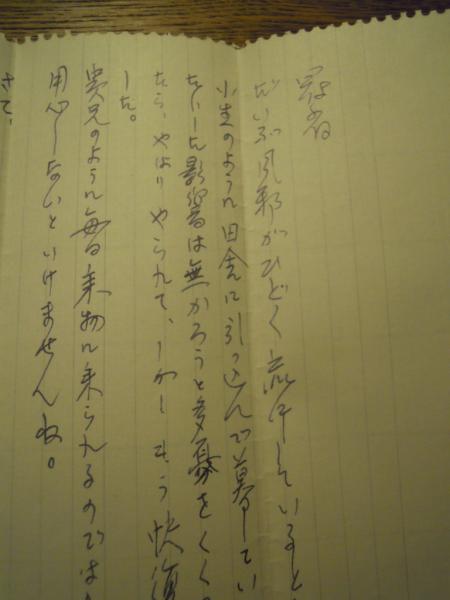 冠省
だいぶ風邪がひどく流行していると
小生のように田舎に引っ込んで暮してい
たいした影響は無かろうと多寡をくく
たら、やはりやられて、しかしもう快復
した。
貴兄のように毎日乗物に乗られるのでは
用心しないといけませんね。
さて、